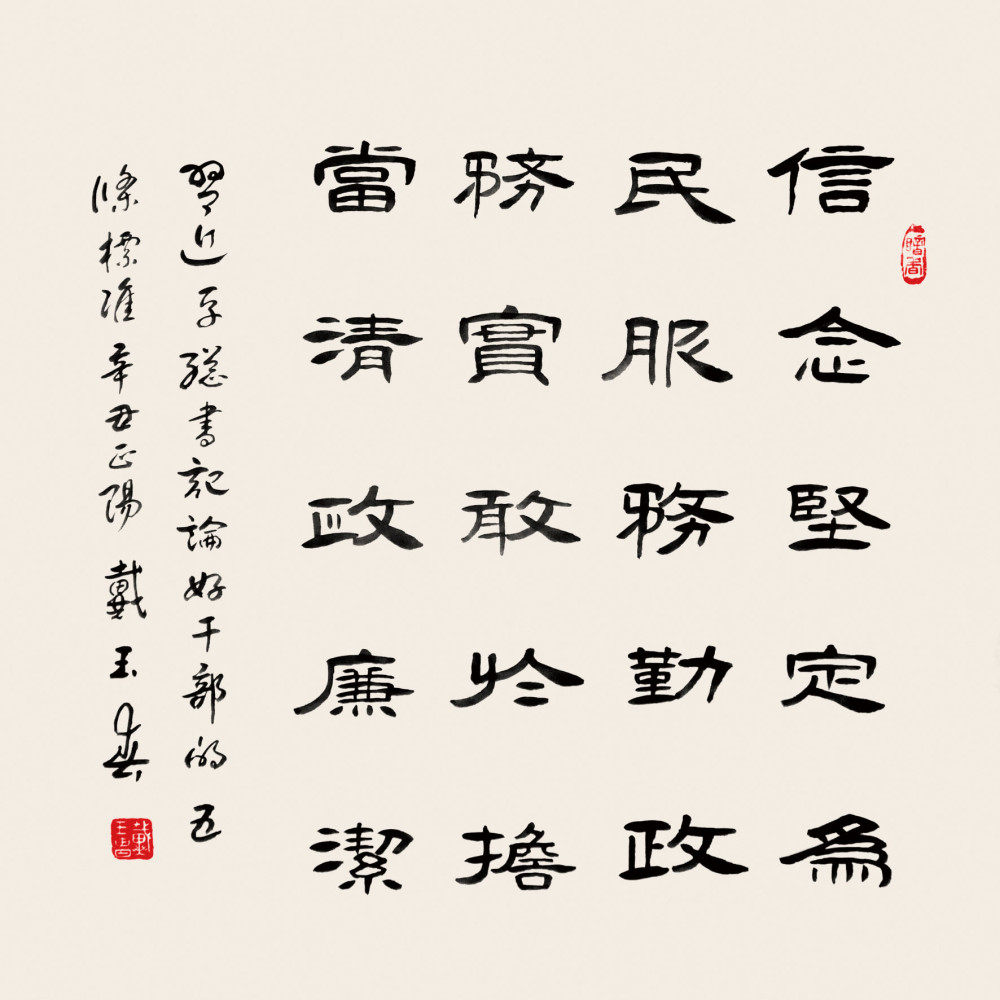 信念堅定爲
民服務勤政
務實敢於擔
當清政廉潔
習近平總書記論好干部的五
條標准辛丑正陽戴玉